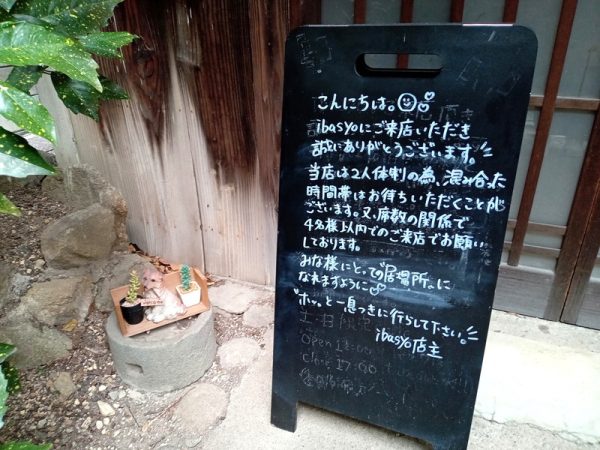 こんにちは。
ibasyoにご来店いただき
誠にありがとうございます。
当店は2人体制の為、混み合った
時間帯はお待ちいただくことが
ございます。又、席数の関係で
4名様以内でのご来店でお願い
しております。
みな様にとっての"居場所"に
なれますように
"ホッ"と一息つきに行らして下さい。
ibasyo店主
Open
Close 17:00